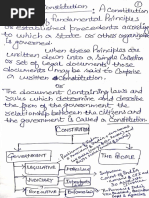 Constitution : A Constitution ①
Fundamental Principles
or established precedents according
to which a State or other organization
is governed.
When these Principles are
written down into a Single Collection
or Set of legal documents, those
documents may be said to comprise
a written Constitution.
or
"The document Containing laws and
rules which determine and describe
the form of the government, the
relationship between the citizens and
the government is Called a Constitution.
Constitution
GOVERNMENT
THE PEOPLE
LEGISLATIVE
JUDICIARY
EXECUTIVE